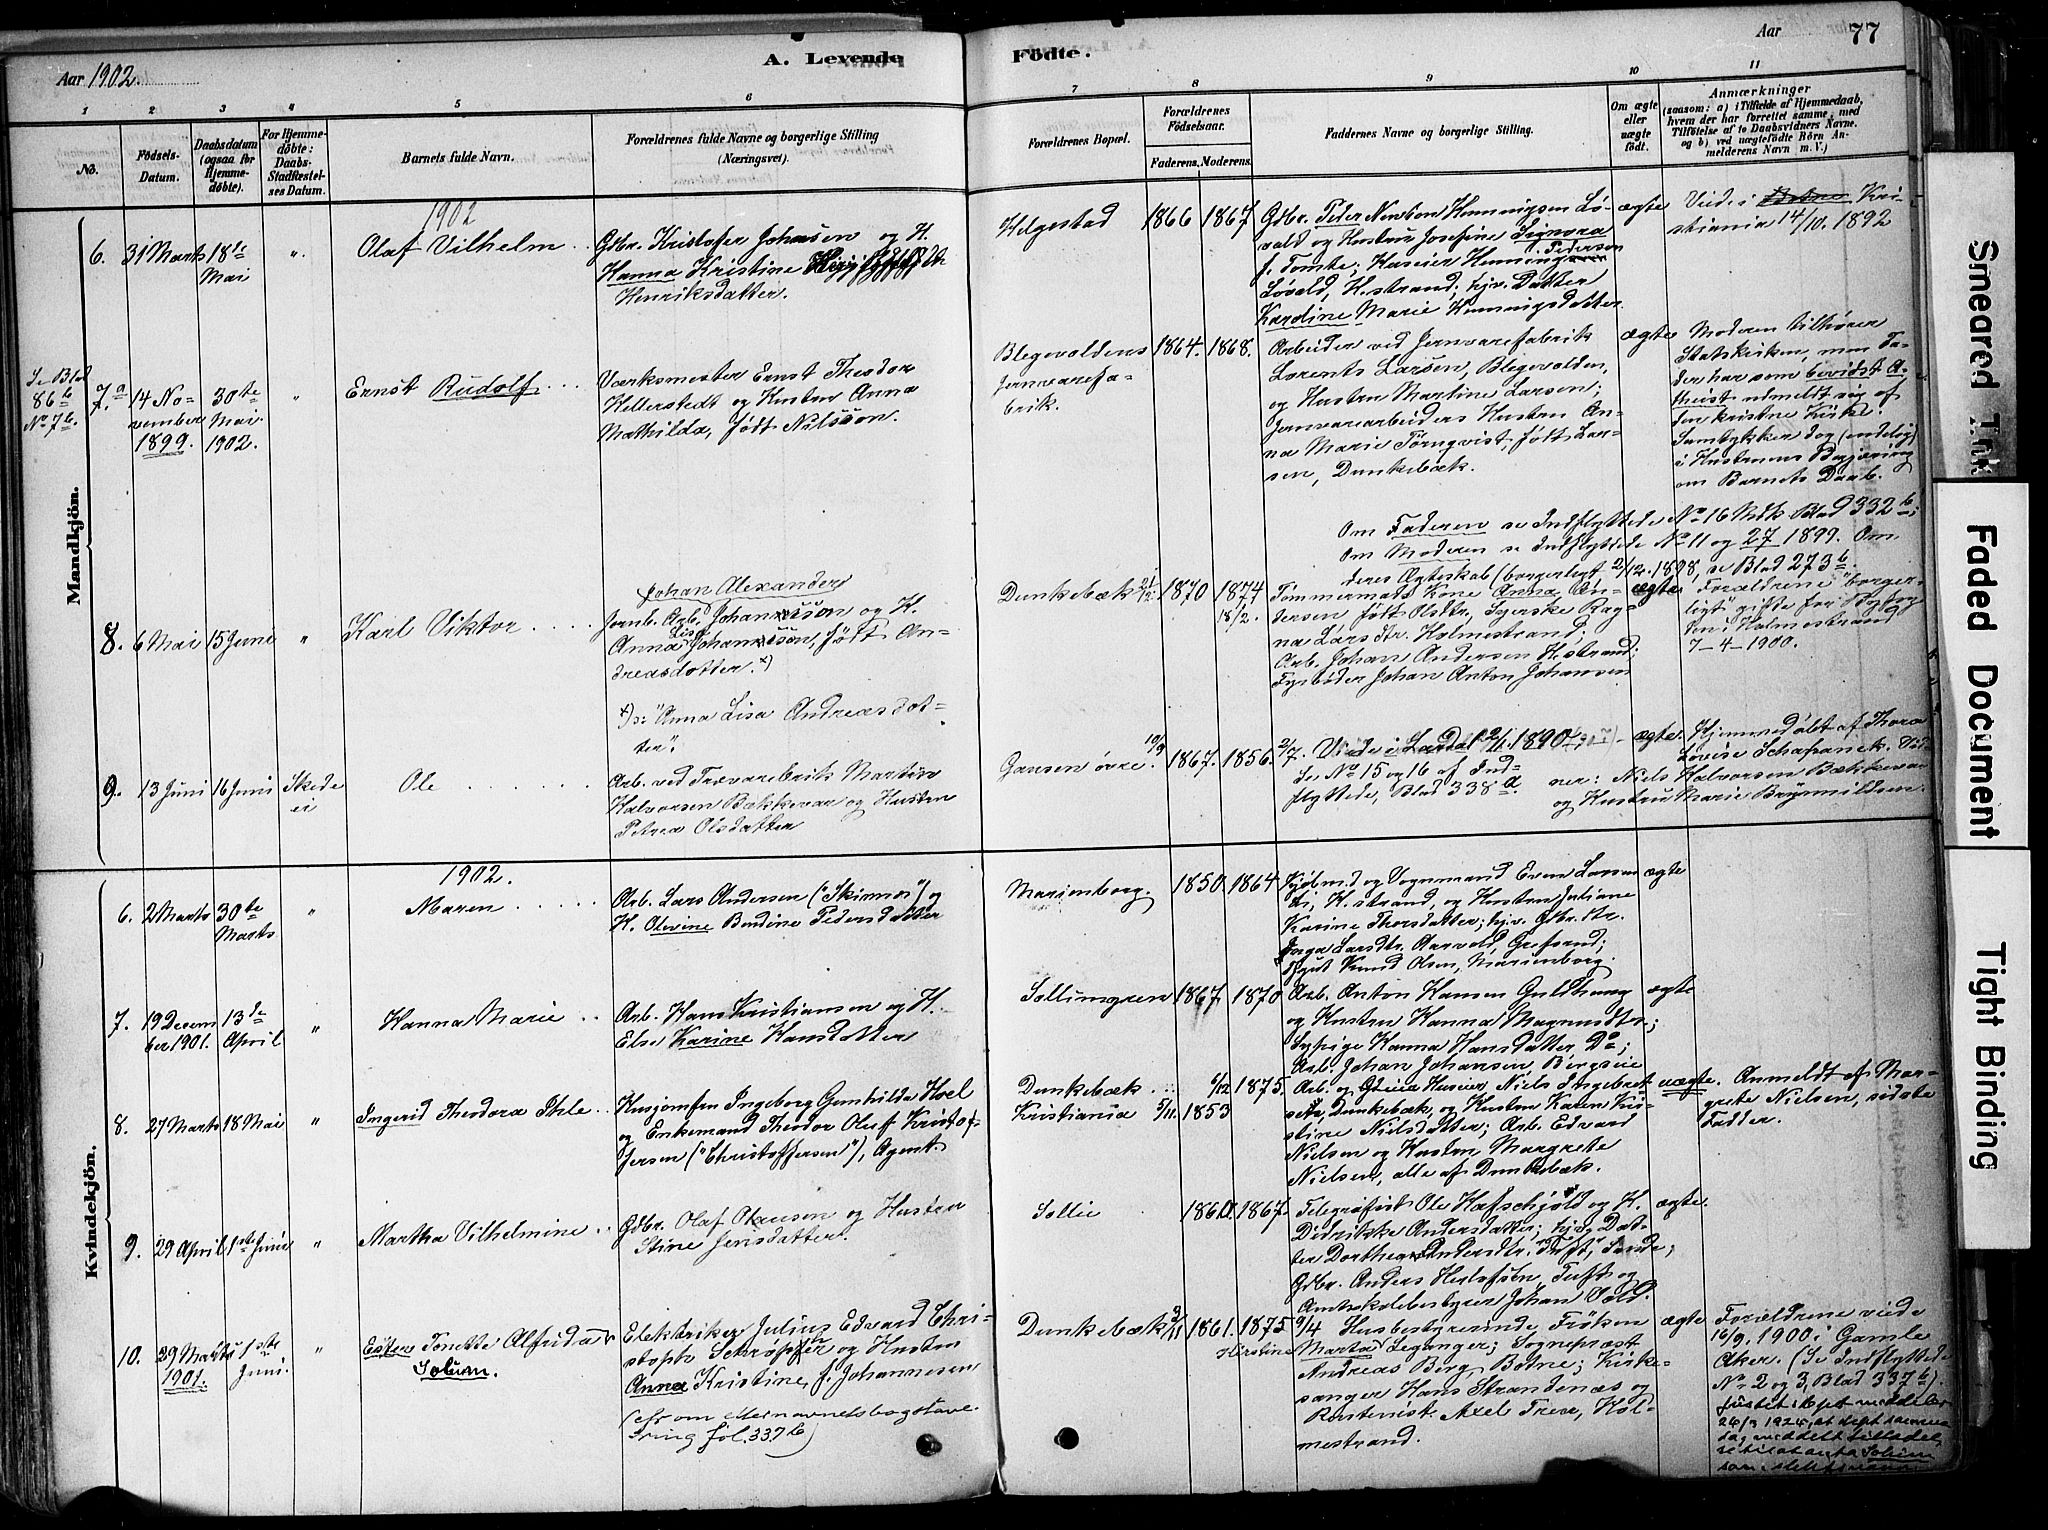 Aar 1902.
A. Levende
Födte.
Aar
77
1
2
3
4
5
6
7
8
9
10
11
No.
Födsels-
Datum.
Daabsdatum
(ogsaa for
Hjemme-
döbte).
For Hjemme-
döbte:
Daabs-
Stadfæstel-
ses Datum.
Barnets fulde Navn.
Forældrenes fulde Navne og borgerlige Stilling
(Næringsvei).
Forældrenes Bopæl.
Forældrenes
Födselsaar.
Faderens.
Moderens.
Faddernes Navne og borgerlige Stilling.
Om ægte
eller
uægte
födt.
Anmærkninger
(saasom: a) i Tilfælde af Hjemmedaab,
hvem der har forrettet samme, med
Tilföielse af to Daabsvidners Navne.
og b) ved uægtefödte Börn An-
melderens Navn m. V.)
Mandkjön.
1902
6.
31 Marts
18de
Mai
"
Olaf Vilhelm
Gdbr. Kristofer Johnsen og H.
Hanna Kristine
Henriksdatter.
Helgestad
1866
1867
Gdbr. Peder Newton Henningsen Lö-
vald og Hustru Josefine Signora
f. Tomte; Huseier Henning Pedersen
Lövald, H.strand; hjv. Datter
Kardine Marie Henningsdatter.
ægte
Viede i Botne Kri-
stiania 14/10. 1892
Se Blad
86 b
No 7 b.
7.a
14 No-
vember
1899.
30te
Mai
1902.
"
Ernst Rudolf
Værksmester Ernst Theodor
Hellerstedt og Hustru Anna
Mathilda, født Nilsson.
Blegevoldens
Jernvarefa-
brik.
1864.
1868.
Arbeider ved Jernvarefabrik
Lorents Larsen, Blegevolden,
og Hustru Martine Larsen;
Jernvarearbeiders Hustru An-
na Marie Törnqvist, født Lar-
sen, Dunkebæk.
ægte
Moderen tilhører
Statskirken, men Fa-
der har som bevidst A-
theist udmeldt sig af
den kristne Kirke.
Samtykker dog (endelig)
i Hustruens Begjæring
om Barnets Daab.
Om Faderen se Indflyttede No 16 Mdk Blad 332 b;
Om Moderen se Indflyttede No 11 og 27 1899. Om
deres Ægteskab (borgerligt 2/12. 1898, se Blad 273 b.
8.
6 Mai
15 Juni
"
Karl Viktor
Johan Alexander
Jernb. Arb. Johansson og H.
Anna Lisa Johansson, født An-
dreasdotter. x)
x) ɔ: "Anna Lisa Andreasdot-
ter".
Dunkebæk
21/12
1870
1874
18/2.
Tømmermds Kone Anna An-
dersen født Olsdtr, Syerske Rag-
na Larsdtr. Holmestrand;
Arb. Johan Andersen H.strand;
Fyrbøder Johan Anton Johansen
ægte
Forældrene "borger-
ligt" gifte for Byfog-
den i Holmestrand
7-4-1900.
9.
13 Juni
16 Juni
Skede
ei
Ole
Arb. ved Trævarebrik Martin
Halvorsen Bækkevar og Hustru
Petrea Olsdatter
Gausen øvre.
10/9
1867.
1856.
2/7.
Viede i Lardal 2/1. 1890
Se No 15 og 16 af Ind-
flyttede, Blad 338 a.
ægte.
Hjemmedøbt af Thora
Lovise Schafanek. Vid-
ner: Niels Halvorsen Bækkevar
og Hustru Marie Brynmildsen.
Kvindekjön.
1902.
6.
2 Marts
30te
Marts
"
Maren
Arb. Lars Andersen ("Skirmos") og
H. Olevine Bendine Pedersdatter
Marienborg.
1850.
1864
Kjøbmd og Vognmand Even Larsen
H.strand, og Hustru Juliane
Karine Thorsdatter; hjv. Gdbr.dtr.
Inga Larsdtr. Aarvold, Grefsrud;
Knud Olsen, Marienborg.
ægte
7.
19 Decem
ber 1901.
13de
April
"
Hanna Marie
Arb. Hans Kristiansen og H.
Else Karine Hansdatter
Sollumgren
1867.
1870
Arb. Anton Hansen Guldhaug
og Hustru Hanna Magnusdtr;
Sypige Hanna Hansdatter Do;
Arb. Johan Johansen, Bergseie
ægte
8.
27 Marts
18 Mai
"
Ingerid Theodora Thle
Husjomfru Ingeborg Gunhilda Hoel
og Enkemand Theodor Olaf Kristof-
fersen ("Christoffersen"), Agent.
Dunkebæk
Kristiania
6/12 1875.
5/11. 1853
Arb. og Huseier Niels Ingebret
sen, Dunkebæk, og Hustru Karen Kri-
stine Nielsdatter; Arb. Edvard
Nielsen og Hustru Margrete
Nielsen, alle af Dunkebæk.
uægte.
Anmeldt af Mar-
grete Nielsen, sidste
Fadder.
9.
29 April
1ste Juni
"
Martha Vilhelmine
Gdbr. Olaf Olausen og Hustru
Stine Jensdatter.
Sollie
1860.
1867.
Telegrafist Ole Hafschjold og H.
Didrikke Andersdatter; hjv. Dat-
ter Dorthea Andersdtr. Tuft, Sande;
Gdbr. Anders Tuft og
Amtskolebestyrer Johan Vold.
ægte.
10.
29 Marts
1901.
1ste
Juni.
"
Ester Tonette Alfrida
Solum.
Elektriker Julius Edvard Chri-
stoph Schröpfer og Hustru
Anna Kristine, f. Johannesen
(cfr om efternavnetsbogstave-
ring fol. 337 b)
Dunkebæk
3/11
1861.
1875
9/4
Husbestyrerinde Frøken
Marta Leganger; Sogneprest
Andreas Berg, Botne; Kirke-
sanger Hans Strandenæs og
Rentenist Axel Frese, Hol-
mestrand.
ægte
Forældrene viede
16/9. 1900 i Gamle
Aker. (Se Indflyttede
No 2 og 3, Blad 337 b).
26/3 1924, at dept samme
dag meddelt tilladel-
se til at anta Solum
som
Smeared Ink
Faded Document
Tight Binding